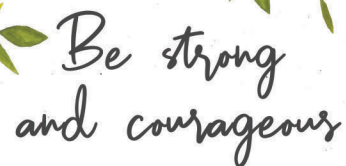 Be strong
and courageous